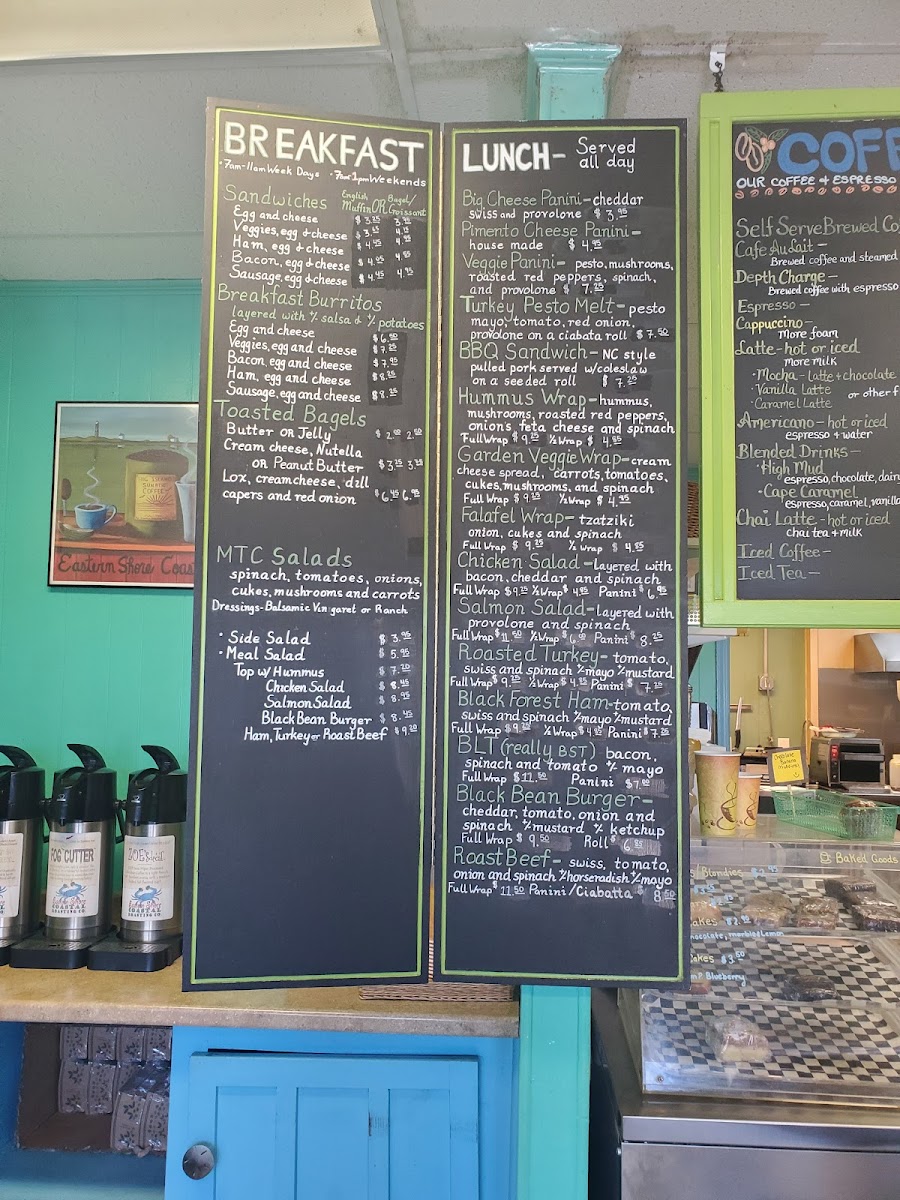 BREAKFAST
• 7am-11am Week Days • 7am-1pm Weekends
Sandwiches English Muffin OR Bagel/Croissant
Egg and cheese $3.25 3.95
Veggies, egg & cheese $3.65 4.15
Ham, egg & cheese $4.45 4.95
Bacon, egg & cheese $4.45 4.95
Sausage, egg & cheese $4.45 4.95
Breakfast Burritos
layered with w/ salsa & w/ potatoes
Egg and cheese $6.50
Veggies, egg and cheese $7.25
Bacon, egg and cheese $7.95
Ham, egg and cheese $8.25
Sausage, egg and cheese $8.25
Toasted Bagels
Butter OR Jelly $2.00 2.00
Cream cheese, Nutella
OR Peanut Butter $3.25 3.25
Lox, creamcheese, dill
capers and red onion $6.95 6.95
MTC Salads
spinach, tomatoes, onions,
cukes, mushrooms and carrots
Dressings-Balsamic Vinigaret or Ranch
• Side Salad $3.95
• Meal Salad $5.95
Top w/ Hummus $7.20
Chicken Salad $8.45
Salmon Salad $8.95
Black Bean Burger $8.45
Ham, Turkey or Roast Beef $9.20
LUNCH- Served
all day
Big Cheese Panini-cheddar
swiss and provolone $3.95
Pimento Cheese Panini-
house made $4.95
Veggie Panini- pesto, mushrooms,
roasted red peppers, spinach,
and provolone $7.25
Turkey Pesto Melt-pesto
mayo, tomato, red onion,
provolone on a ciabata roll $7.50
BBQ Sandwich-NC style
pulled pork served w/coleslaw
on a seeded roll $7.25
Hummus Wrap-hummus,
mushrooms, roasted red peppers,
onions, feta cheese and spinach
Full Wrap $9.25 ½ Wrap $4.85
Garden Veggie Wrap-cream
cheese spread, carrots, tomatoes,
cukes, mushrooms, and spinach
Full Wrap $9.25 ½ Wrap $4.95
Falafel Wrap- tzatziki
onion, cukes and spinach
Full Wrap $9.25 ½ Wrap $4.85
Chicken Salad-layered with
bacon, cheddar and spinach
Full Wrap $9.25 ½ Wrap $4.85 Panini $6.95
Salmon Salad-layered with
provolone and spinach
Full Wrap $11.50 ½ Wrap $6.00 Panini $8.25
Roasted Turkey- tomato,
swiss and spinach w/mayo w/mustard
Full Wrap $9.25 ½ Wrap $4.85 Panini $7.25
Black Forest Ham-tomato,
swiss and spinach w/mayo w/mustard
Full Wrap $9.25 ½ Wrap $4.85 Panini $7.25
BLT (really BST) bacon,
spinach and tomato w/ mayo
Full Wrap $11.50 Panini $7.00
Black Bean Burger-
cheddar, tomato, onion and
spinach w/mustard w/ ketchup
Full Wrap $9.50 Roll $6.85
Roast Beef- swiss, tomato,
onion and spinach w/horseradish w/mayo
Full Wrap $11.50 Panini/Ciabatta $8.50
COFF
OUR COFFEE & ESPRESSO
Self Serve Brewed Co
Cafe Au Lait -
Brewed coffee and steamed
Depth Charge -
Brewed coffee with espresso
Espresso -
Cappuccino -
More foam
Latte-hot or iced
more milk
• Mocha-latte + chocolate
• Vanilla Latte
or other f
• Caramel Latte
Americano-hot or iced
espresso + water
Blended Drinks-
• High Mud
espresso, chocolate, dair
• Cape Caramel
espresso, caramel, vanilla
Chai Latte-hot or iced
chai tea + milk
Iced Coffee-
Iced Tea-
Eastern Shore Coas
FOG CUTTER
COASTAL
ROASTING CO.
COASTAL
ROASTING CO.
Baked Goods
Blondies
Cakes
chocolate, marble, Lemon
Cakes $3.50
Blueberry